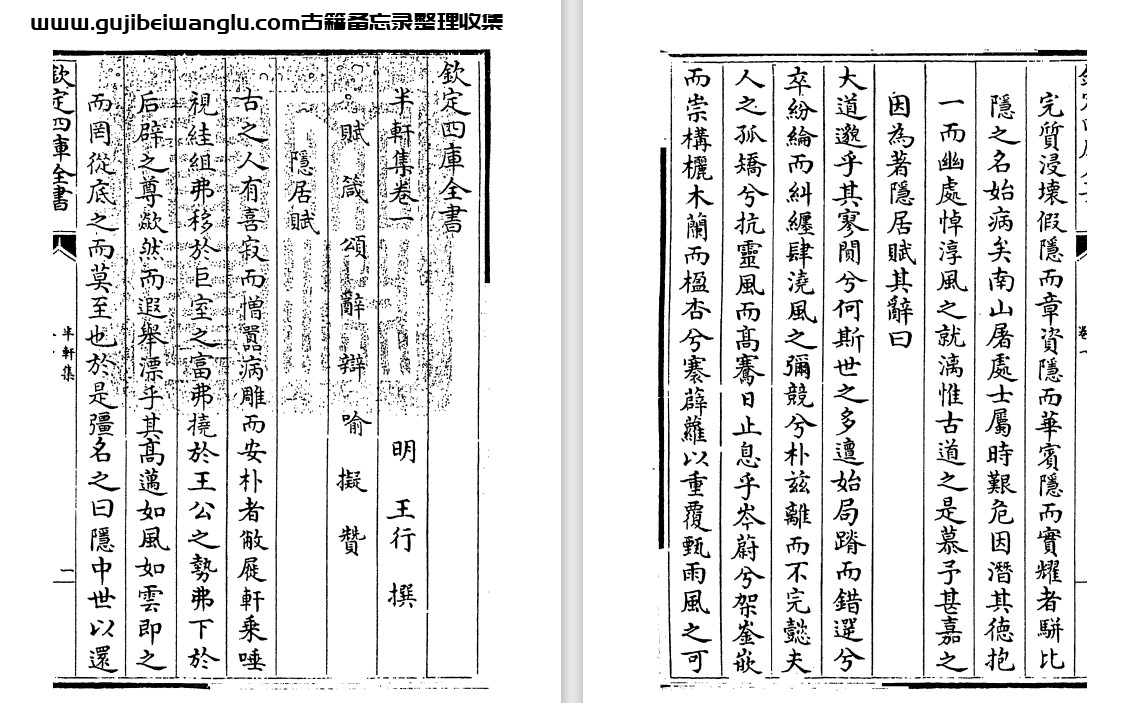 www.gujibeiwanglu.com古籍备忘录整理收集
欽定四庫全書
半軒集卷一
明 王行 撰
賦 箴 頌 辭 辯 喻 擬 贊
隱居賦
古之人有喜寂而憎囂病雕而安朴者敝屣軒乘唾
視絓組弗移於巨室之富弗撓於王公之勢弗下於
后辟之尊歘然而遐舉漂乎其髙邁如風如雲即之
而罔從底之而莫至也於是彊名之曰隱中世以還
欽定四庫全書
半軒集
一
卷一
完質浸壞假隱而章資隱而華賓隱而實耀者駢比
隱之名始病矣南山屠處士屬時艱危因潛其德抱
一而幽處悼淳風之就漓惟古道之是慕予甚嘉之
因為著隱居賦其辭曰
大道邈乎其寥閴兮何斯世之多邅始局蹐而錯迕兮
卒紛綸而糾纆肆澆風之彌競兮朴兹離而不完懿夫
人之孤矯兮抗靈風而髙騫日止息乎岑蔚兮架崟嵌
而崇構欐木蘭而楹杏兮褰薜蘿以重覆甄雨風之可